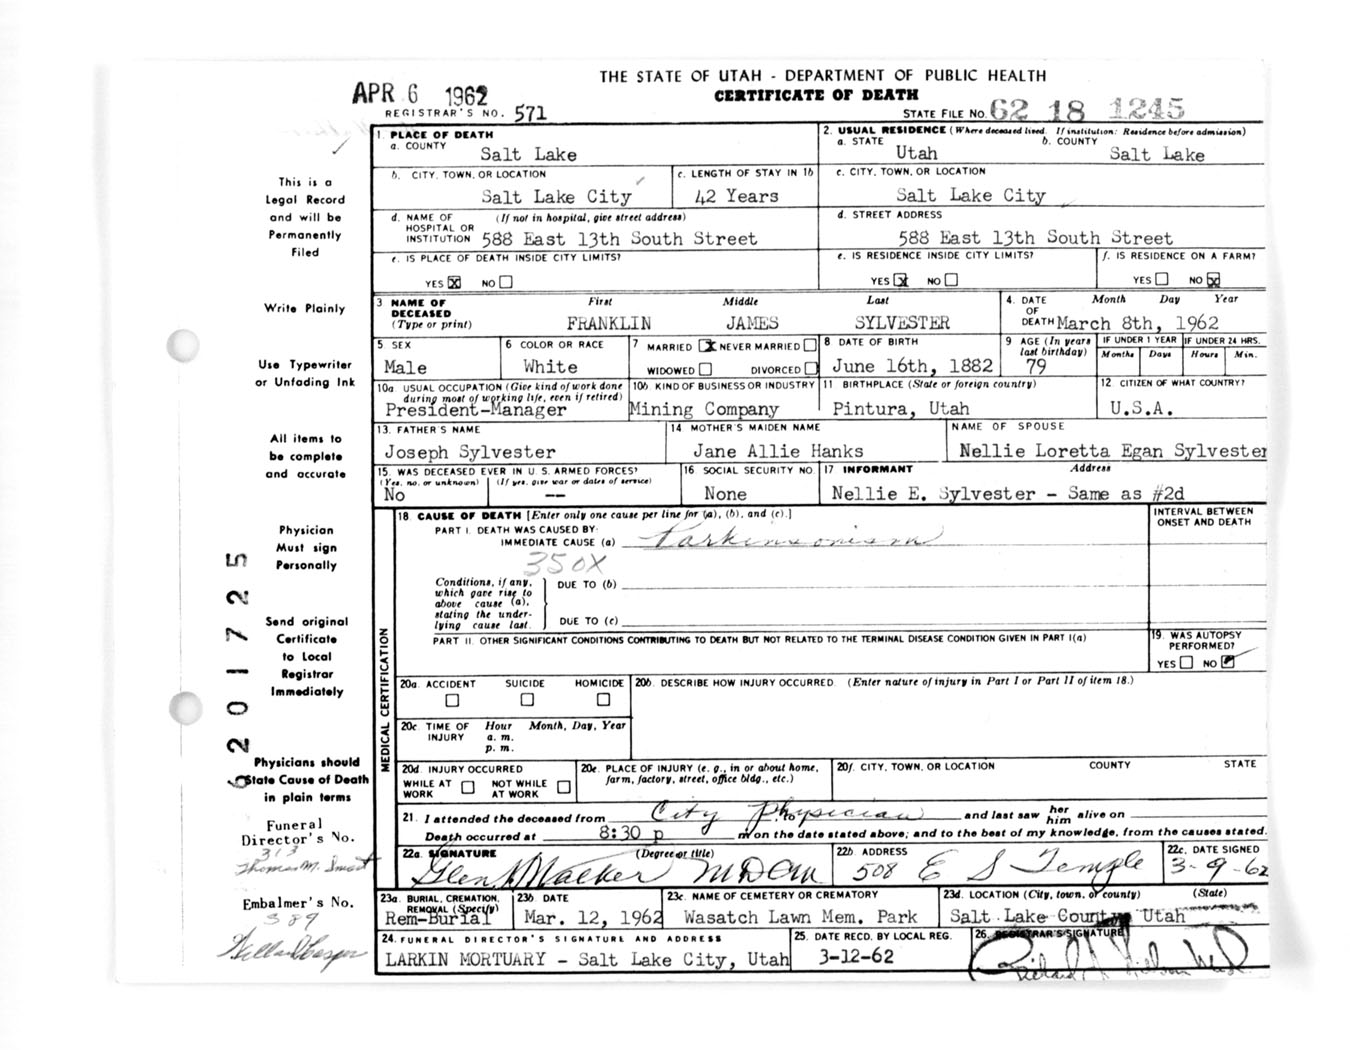 THE STATE OF UTAH - DEPARTMENT OF PUBLIC HEALTH
CERTIFICATE OF DEATH
APR 6 1962
REGISTRAR'S NO. 571
STATE FILE NO. 62 18 1245
1. PLACE OF DEATH
a. COUNTY Salt Lake
2. USUAL RESIDENCE (Where deceased lived. If institution: Residence before admission)
a. STATE Utah b. COUNTY Salt Lake
b. CITY, TOWN, OR LOCATION Salt Lake City
c. LENGTH OF STAY IN 1b 42 Years
c. CITY, TOWN, OR LOCATION Salt Lake City
d. NAME OF HOSPITAL OR INSTITUTION (If not in hospital, give street address) 588 East 13th South Street
d. STREET ADDRESS 588 East 13th South Street
e. IS PLACE OF DEATH INSIDE CITY LIMITS? YES X NO
e. IS RESIDENCE INSIDE CITY LIMITS? YES X NO
f. IS RESIDENCE ON A FARM? YES NO X
3 NAME OF DECEASED (Type or print) First FRANKLIN Middle JAMES Last SYLVESTER
4. DATE OF DEATH Month Day Year March 8th, 1962
5 SEX Male
6 COLOR OR RACE White
7 MARRIED X NEVER MARRIED WIDOWED DIVORCED
8 DATE OF BIRTH June 16th, 1882
9 AGE (In years last birthday) 79
IF UNDER 1 YEAR Months Days
IF UNDER 24 HRS. Hours Min.
10a. USUAL OCCUPATION (Give kind of work done during most of working life, even if retired) President-Manager
10b. KIND OF BUSINESS OR INDUSTRY Mining Company
11 BIRTHPLACE (State or foreign country) Pintura, Utah
12 CITIZEN OF WHAT COUNTRY? U.S.A.
13. FATHER'S NAME Joseph Sylvester
14 MOTHER'S MAIDEN NAME Jane Allie Hanks
NAME OF SPOUSE Nellie Loretta Egan Sylvester
15. WAS DECEASED EVER IN U.S. ARMED FORCES? (Yes, no. or unknown) (If yes, give war or dates of service) No --
16 SOCIAL SECURITY NO. None
17 INFORMANT Address Nellie E. Sylvester - Same as #2d
MEDICAL CERTIFICATION
18. CAUSE OF DEATH [Enter only one cause per line for (a), (b), and (c).]
INTERVAL BETWEEN ONSET AND DEATH
PART I. DEATH WAS CAUSED BY:
IMMEDIATE CAUSE (a) Parkinsonism
350X
Conditions, if any, which gave rise to above cause (a), stating the underlying cause last.
DUE TO (b)
DUE TO (c)
PART II. OTHER SIGNIFICANT CONDITIONS CONTRIBUTING TO DEATH BUT NOT RELATED TO THE TERMINAL DISEASE CONDITION GIVEN IN PART I(a)
19. WAS AUTOPSY PERFORMED? YES NO
20a. ACCIDENT SUICIDE HOMICIDE
20b. DESCRIBE HOW INJURY OCCURRED. (Enter nature of injury in Part I or Part II of item 18.)
20c TIME OF INJURY Hour a. m. p. m. Month, Day, Year
20d. INJURY OCCURRED WHILE AT WORK NOT WHILE AT WORK
20e. PLACE OF INJURY (e. g., in or about home, farm, factory, street, office bldg., etc.)
20f. CITY, TOWN, OR LOCATION COUNTY STATE
21. I attended the deceased from City Physician to and last saw her him alive on
Death occurred at 8:30 p m on the date stated above; and to the best of my knowledge, from the causes stated.
22a. SIGNATURE (Degree or title) Glen Walker MD CM
22b. ADDRESS 508 E S Temple
22c. DATE SIGNED 3-9-62
23a. BURIAL, CREMATION, REMOVAL (Specify) Rem-Burial
23b. DATE Mar. 12, 1962
23c. NAME OF CEMETERY OR CREMATORY Wasatch Lawn Mem. Park
23d. LOCATION (City, town, or county) (State) Salt Lake County Utah
24. FUNERAL DIRECTOR'S SIGNATURE AND ADDRESS LARKIN MORTUARY - Salt Lake City, Utah
25. DATE RECD. BY LOCAL REG. 3-12-62
26. REGISTRAR'S SIGNATURE
This is a
Legal Record
and will be
Permanently
Filed
Write Plainly
Use Typewriter
or Unfading Ink
All items to
be complete
and accurate
Physician
Must sign
Personally
Send original
Certificate
to Local
Registrar
Immediately
Physicians should
State Cause of Death
in plain terms
Funeral
Director's No.
313
Thomas M. Smart
Embalmer's No.
389
201725